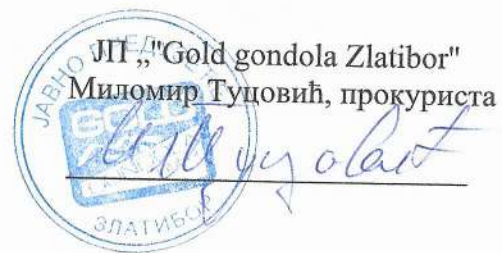 ЈП „"Gold gondola Zlatibor"
Миломир Туцовић, прокуриста
ЈАВНО ПРЕДУЗЕЋЕ
GOLD
ЗЛАТИБОР